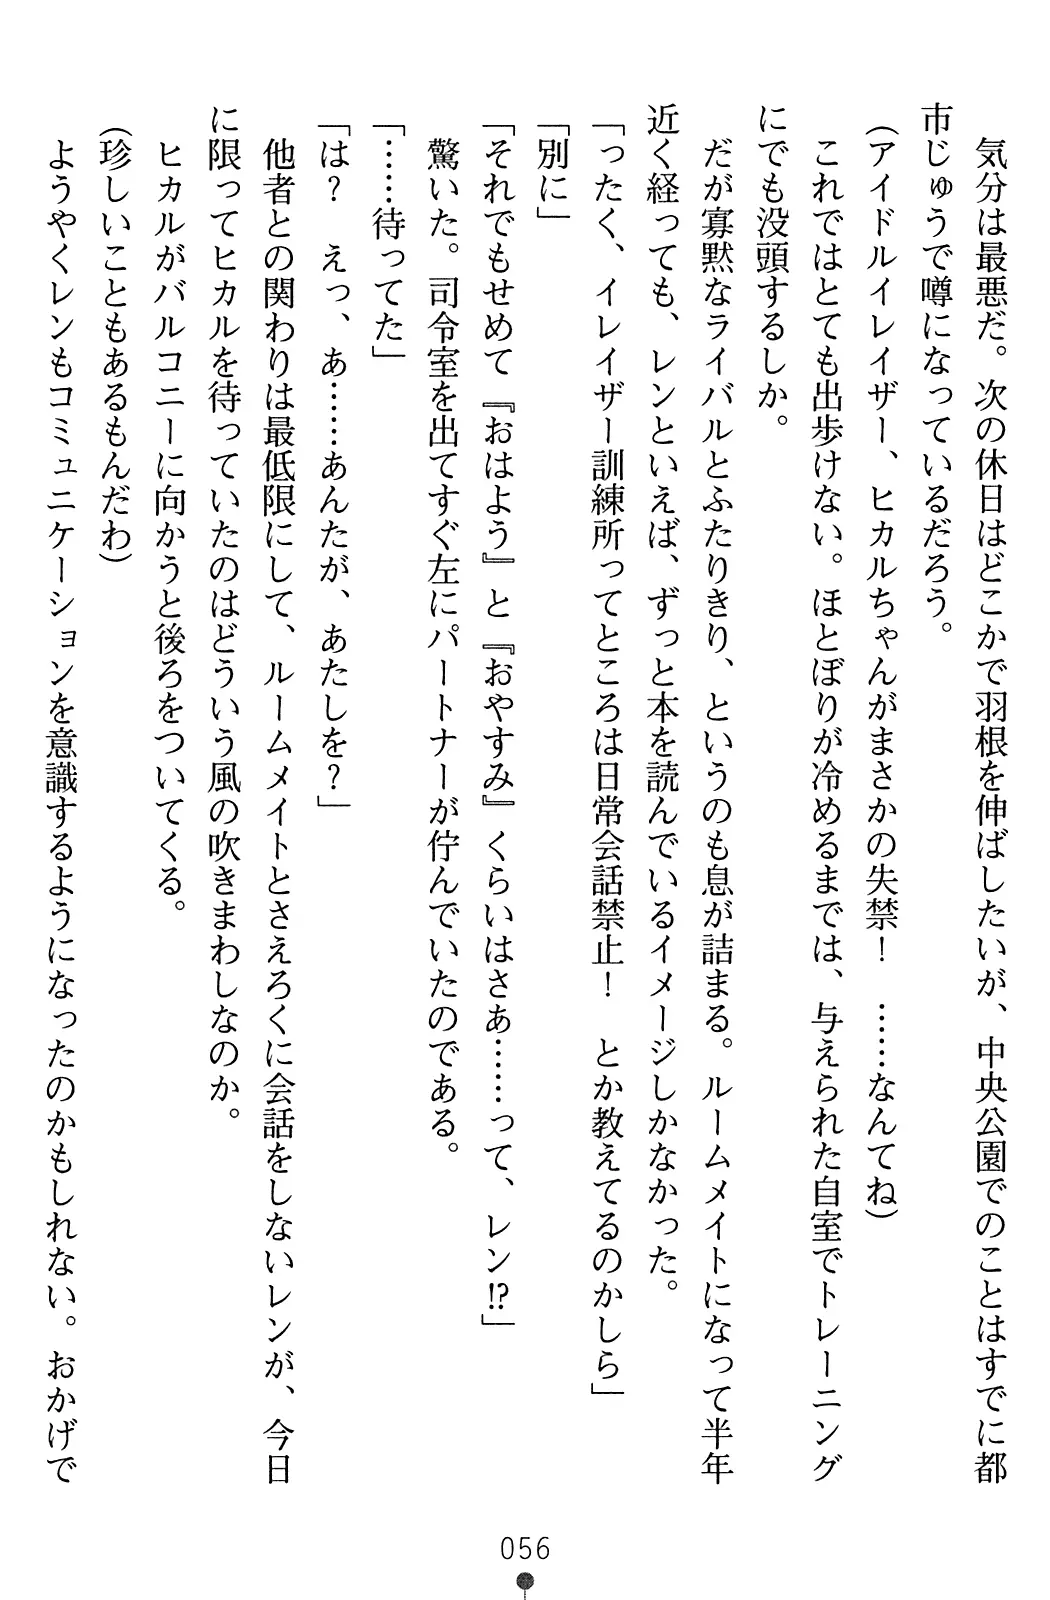 気分は最悪だ。次の休日はどこかで羽根を伸ばしたいが、中央公園でのことはすでに都
市じゅうで噂になっているだろう。
（アイドルイレイザー、ヒカルちゃんがまさかの失禁！　……なんてね）
　これではとても出歩けない。ほとぼりが冷めるまでは、与えられた自室でトレーニング
にでも没頭するしか。
　だが寡黙なライバルとふたりきり、というのも息が詰まる。ルームメイトになって半年
近く経っても、レンといえば、ずっと本を読んでいるイメージしかなかった。
「ったく、イレイザー訓練所ってところは日常会話禁止！　とか教えてるのかしら」
「別に」
「それでもせめて『おはよう』と『おやすみ』くらいはさあ……って、レン!?」
　驚いた。司令室を出てすぐ左にパートナーが佇んでいたのである。
「……待ってた」
「は？　えっ、あ……あんたが、あたしを？」
　他者との関わりは最低限にして、ルームメイトとさえろくに会話をしないレンが、今日
に限ってヒカルを待っていたのはどういう風の吹きまわしなのか。
　ヒカルがバルコニーに向かうと後ろをついてくる。
（珍しいこともあるもんだわ）
　ようやくレンもコミュニケーションを意識するようになったのかもしれない。おかげで
056